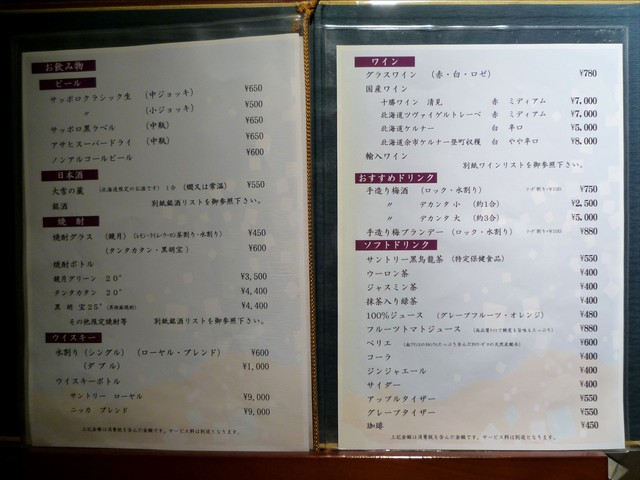 お飲み物
ビール
サッポロクラシック生 (中ジョッキ) ¥650
〃 (小ジョッキ) ¥500
サッポロ黒ラベル (中瓶) ¥650
アサヒスーパードライ (中瓶) ¥650
ノンアルコールビール ¥600
日本酒
大雪の蔵 (北海道限定のお酒です) 1合 (燗又は常温) ¥550
銘酒 別紙銘酒リストを御参照下さい。
焼酎
焼酎グラス (鏡月) ¥450
(タンタカタン・黒胡宝) ¥600
焼酎ボトル
鏡月グリーン 20° ¥3,500
タンタカタン 20° ¥4,400
黒胡宝25° ¥4,400
その他限定焼酎等 別紙銘酒リストを御参照下さい。
ウイスキー
水割り(シングル) (ローヤル・ブレンド) ¥600
(ダブル) ¥1,000
ウイスキーボトル
サントリー ローヤル ¥9,000
ニッカ ブレンド ¥9,000
上記金額は消費税を含んだ金額です。サービス料は別途となります。
ワイン
グラスワイン (赤・白・ロゼ) ¥780
国産ワイン
十勝ワイン 清見 赤 ミディアム ¥7,000
北海道ツヴァイゲルトレーベ 赤 ミディアム ¥7,000
北海道ケルナー 白 辛口 ¥5,000
北海道余市ケルナー登町収穫 白 やや辛口 ¥8,000
輸入ワイン
別紙ワインリストを御参照下さい。
おすすめドリンク
手造り梅酒 (ロック・水割り) ¥750
〃 デカンタ 小 (約1合) ¥2,500
〃 デカンタ 大 (約3合) ¥5,000
手造り梅ブランデー (ロック・水割り) ¥880
ソフトドリンク
サントリー黒烏龍茶 (特定保健食品) ¥550
ウーロン茶 ¥400
ジャスミン茶 ¥400
抹茶入り緑茶 ¥400
100%ジュース (グレープフルーツ・オレンジ) ¥480
フルーツトマトジュース ¥880
ペリエ ¥600
コーラ ¥400
ジンジャエール ¥400
サイダー ¥400
アップルタイザー ¥550
グレープタイザー ¥550
珈琲 ¥450
上記金額は消費税を含んだ金額です。サービス料は別途となります。